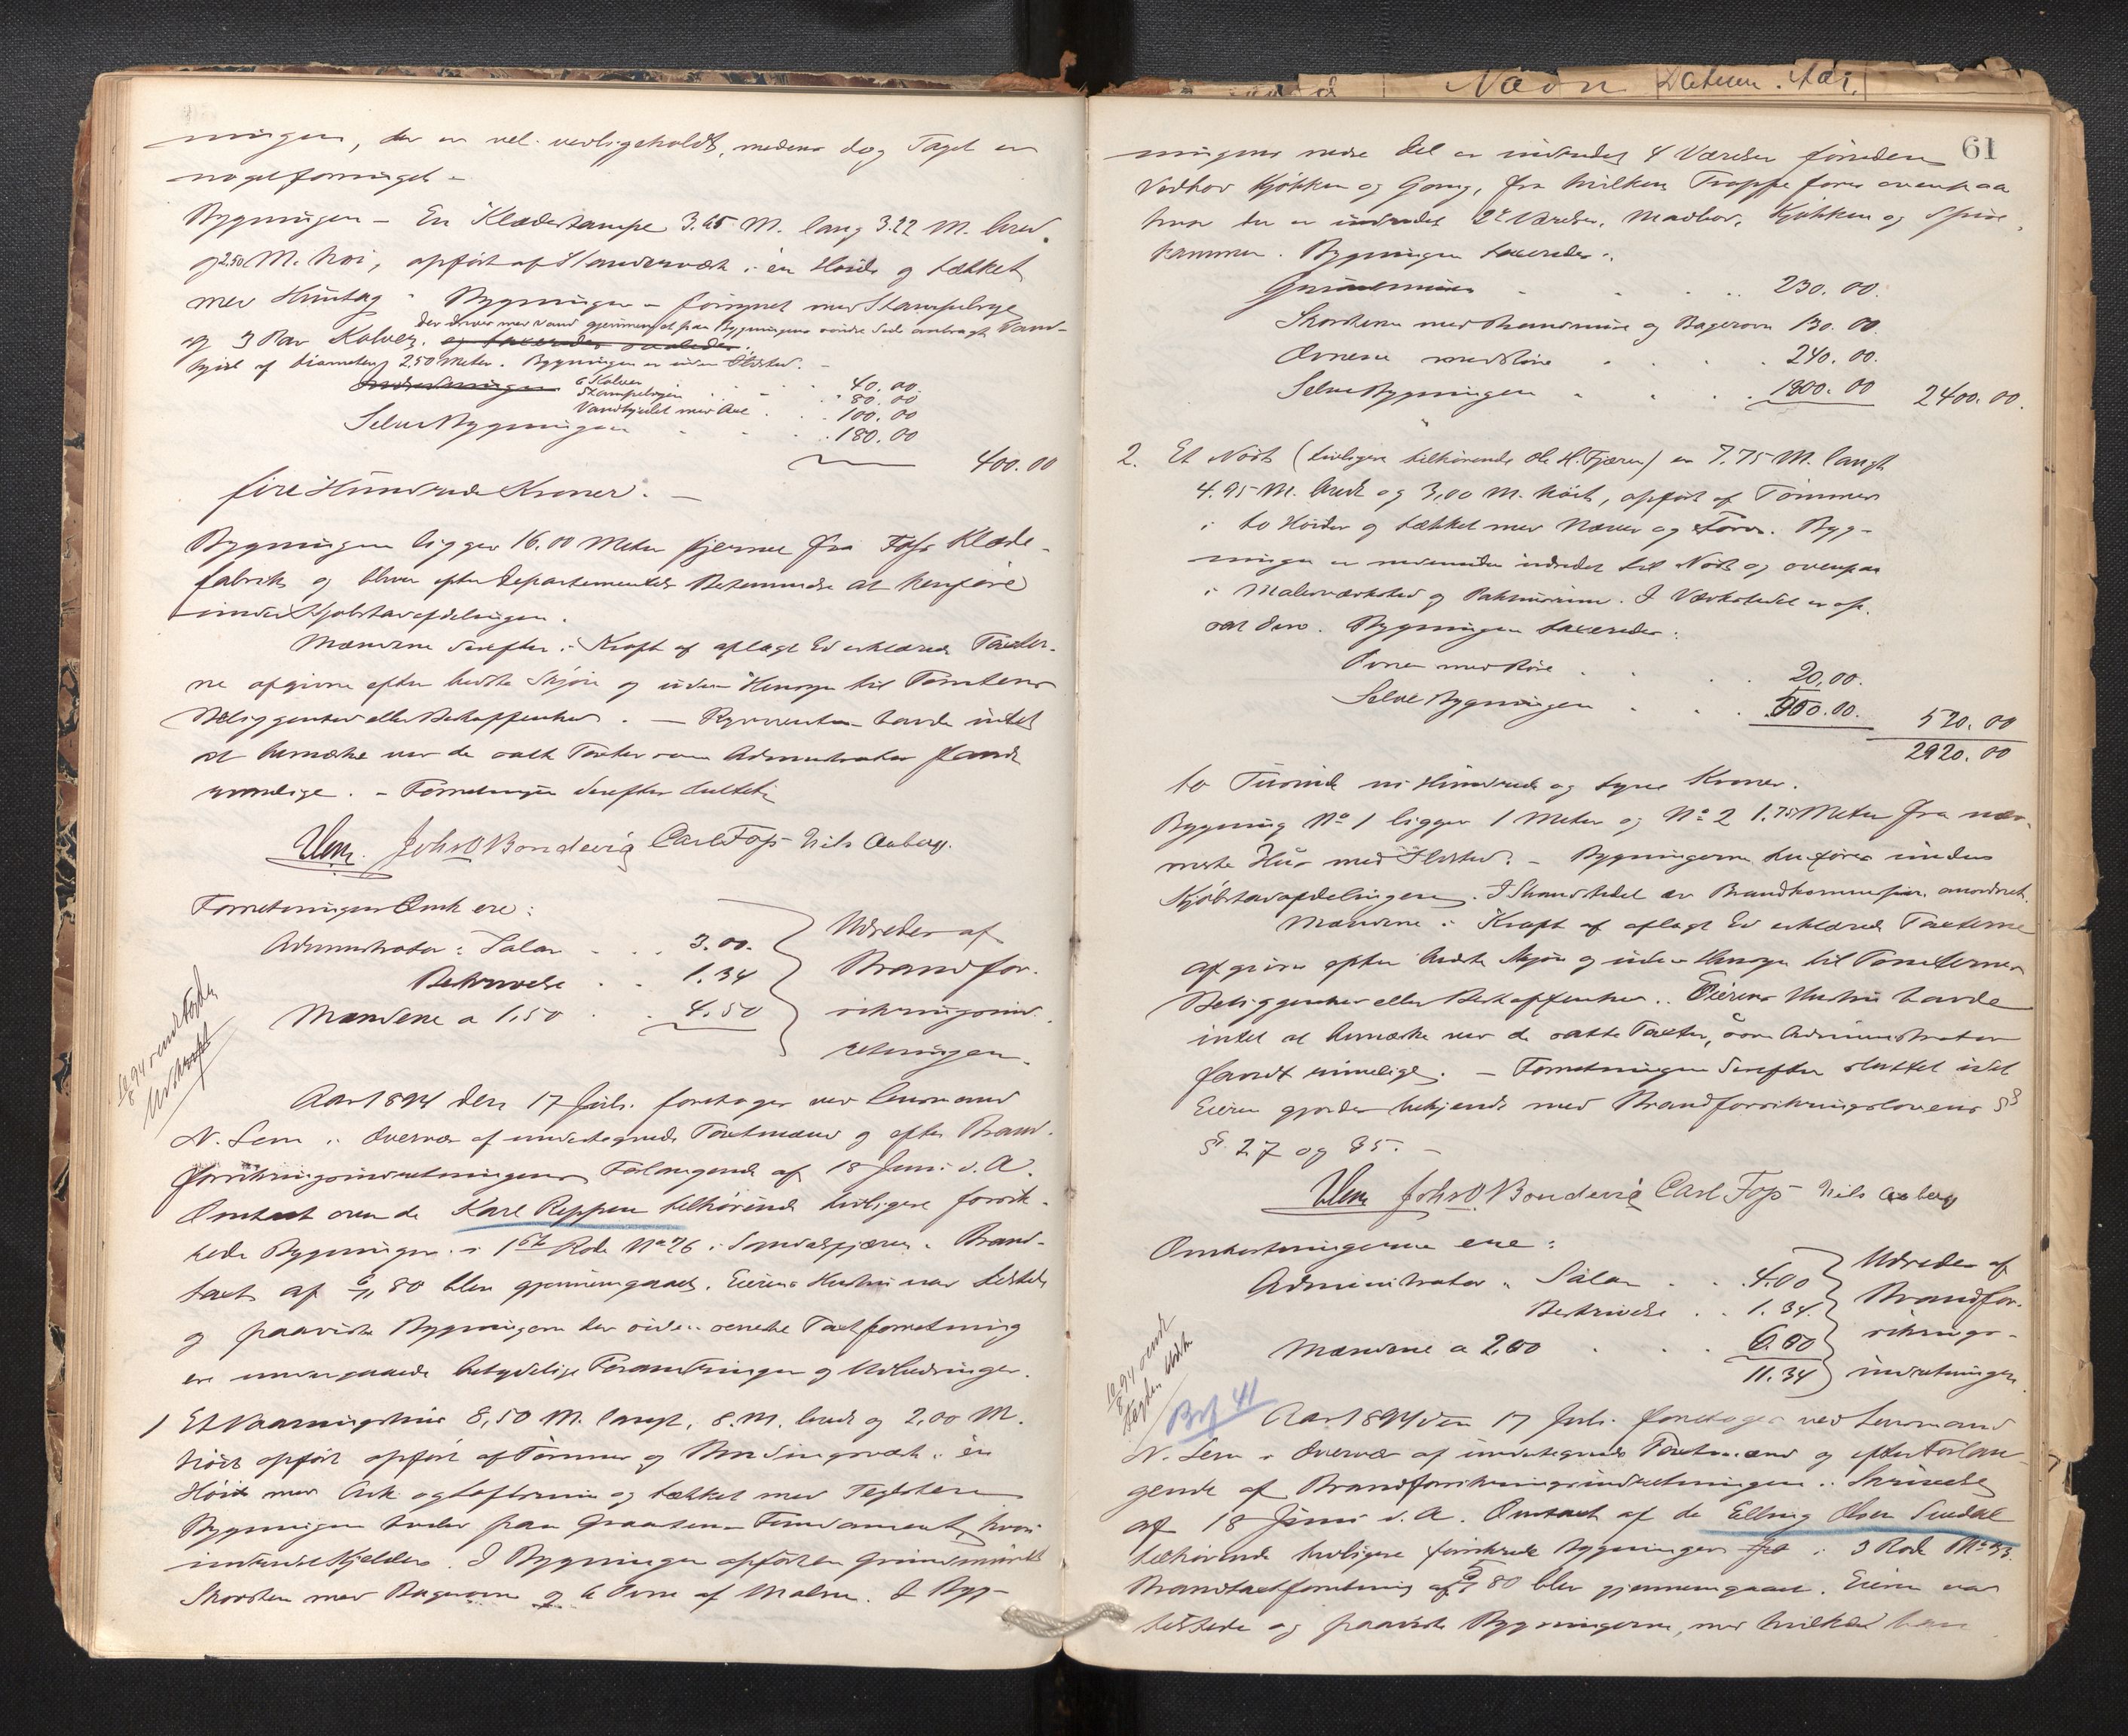 ningen, der er vel vedligeholdt, medens dog Taget er
noget forringet.
Bygningen – En Klædestampe 3.65 M. lang 3.22 M. bred
og 2.50 M. høi, opført af Standerværk i en Høide og tækket
med Huntag. Bygningen er forsynet med Stampebryg
og 3 Par Kolver, der drives med Vand gjennem et paa Bygningens søndre Side anbragt Vand-
hjul af Diameter 2,50 Meter. Bygningen er uden Ildsted.
6 Kolver 40.00
Stampebrygen 80.00
Vandhjulet med Axe 100.00
Selve Bygningen 180.00
400.00
fire Hundrede Kroner. –
Bygningen ligger 16.00 Meter fjernet fra Fops Klæde-
fabrik og bliver efter Departementets Bestemmelse at henføre
under Kjøbstadafdelingen.
Mændene derefter i Kraft af aflagt Ed erklærede Taxter-
ne afgivne efter bedste Skjøn og uden Hensyn til Tomtens
Beliggenhed eller Beskaffenhed. – Rekvirenten havde intet
at bemærke ved de satte Taxter som Administrator fandt
rimelige. – Forretningen derefter sluttet.
Lem. Johs O Bondevig Carl Fop Nils Aaberg.
Forretningens Omk. ere:
Administrator: Salær 3.00.
Beskrivelse 1.34
Mændene a 1.50 4.50
Udredes af
Brandfor-
sikringsind-
retningen.
10/8 94 sendt Fogden
Udskrift
Aar 1894 den 17 Juli foretoges ved Lensmand
N. Lem i Overvær af undertegnede Taxtmænd og efter Brand-
forsikringsindretningens Forlangende af 18 Juni d. A.
Omtaxt over de Karl Reppen tilhørende tidligere forsik-
rede Bygninger i 1ste Rode No 26 i Sogndalsfjæren. Brand-
taxt af 80 blev gjennemgaaet. Eierens Hustru var tilstede
og paaviste Bygningerne der siden seneste Taxtforretning
ere undergaaede betydelige Forandringer og Udbedringer.
1 Et Vaaningshus 8,50 M. langt, 8. M. bredt og 2,00 M.
høit opført opført af Tømmer og Bindingsværk i en
Høide med Ark og Loftsrum og tækket med Teglsten
Bygningen hviler paa Graastens Fundament, hvori
indrettet Kjelder. I Bygningen opført en Grundmuret
Skorsten med Bagerovn og 6 Ovne af Malm. I Byg-
61
ningens nedre Del er indredet 4 Værelser foruden
Vedbod Kjøkken og Gang, fra hvilken Trappe fører ovenpaa
hvor der er indredet 2 Værelser, Madbod, Kjøkken og Spise-
kammer. Bygningen taxeredes:
Grundmuren 230.00.
Skorstenen med Brandmure og Bagerovn 130.00.
Ovnene med Rør 240.00.
Selve Bygningen 1800.00 2400.00.
2. Et Nøst (tidligere tilhørende Ole H. Fjæren) er 7.75 M. langt
4.95 M. bredt og 3,00 M. høit, opført af Tømmer
i to Høider og tækket med Næver og Torv. Byg-
ningen er nedenunder indredet til Nøst og ovenpaa
i Malerværksted og Pakrum. I Værkstedet er op-
sat Ovn. Bygningen taxeredes:
Ovnen med Rør 20,00.
Selve Bygningen 500.00. 520.00
2920.00
to Tusinde ni Hundrede og tyve Kroner.
Bygning No 1 ligger 1 Meter og No 2 1.75 Meter fra nær-
meste Hus med Ildsted. – Bygningerne henføres under
Kjøbstadafdelingen. I Strandstedet er Brandkommission anordnet.
Mændene i Kraft af aflagt Ed erklærede Taxterne
afgivne efter bedste Skjøn og uden Hensyn til Tomternes
Beliggenhed eller Beskaffenhed. Eierens Hustru havde
intet at bemærke ved de satte Taxter, som Administrator
fandt rimelige. – Forretningen derefter sluttet idet
Eieren gjordes bekjendt med Brandforsikringslovens §§
§§ 27 og 35. –
Lem Johs O Bondevig Carl Fop Nils Aaberg
Omkostningerne ere:
Administrator: Salær 4.00
Beskrivelse 1.34.
Mændene a 2.00 6.00
11.34
Udredes af
Brandfor-
sikrings-
indretningen.
10/8 94 sendt
Fogden Udskr.
Brf 41
Aar 1894 den 17 Juli foretoges ved Lensmand
N. Lem i Overvær af undertegnede Taxtmænd og efter Forlan-
gende af Brandforsikringsindretningen i Skrivelse
af 18 Juni d. A. Omtaxt af de Elling Olsen Suedal
tilhørende tidligere forsikrede Bygninger i 3 Rode No 93.
Brandtaxtforretning af 80 blev gjennemgaaet. Eieren var
tilstede og paaviste Bygningerne, med hvilke han